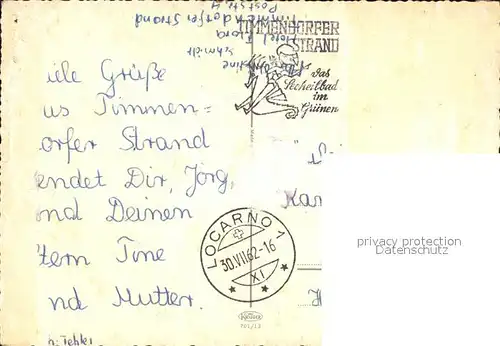 Poststr. 4
Timmendorfer Strand
Hotel Dora
Schmidt
TIMMENDORFER
STRAND
Das
Seeheilbad
im
Grünen
iele Grüße
us Timmen=
orfer Strand
endet Dir, Jörg,
nd Deinen
tern Tine
nd Mutter.
LOCARNO 1
30.VII 62-16
XI
Kar
privacy protection
Datenschutz